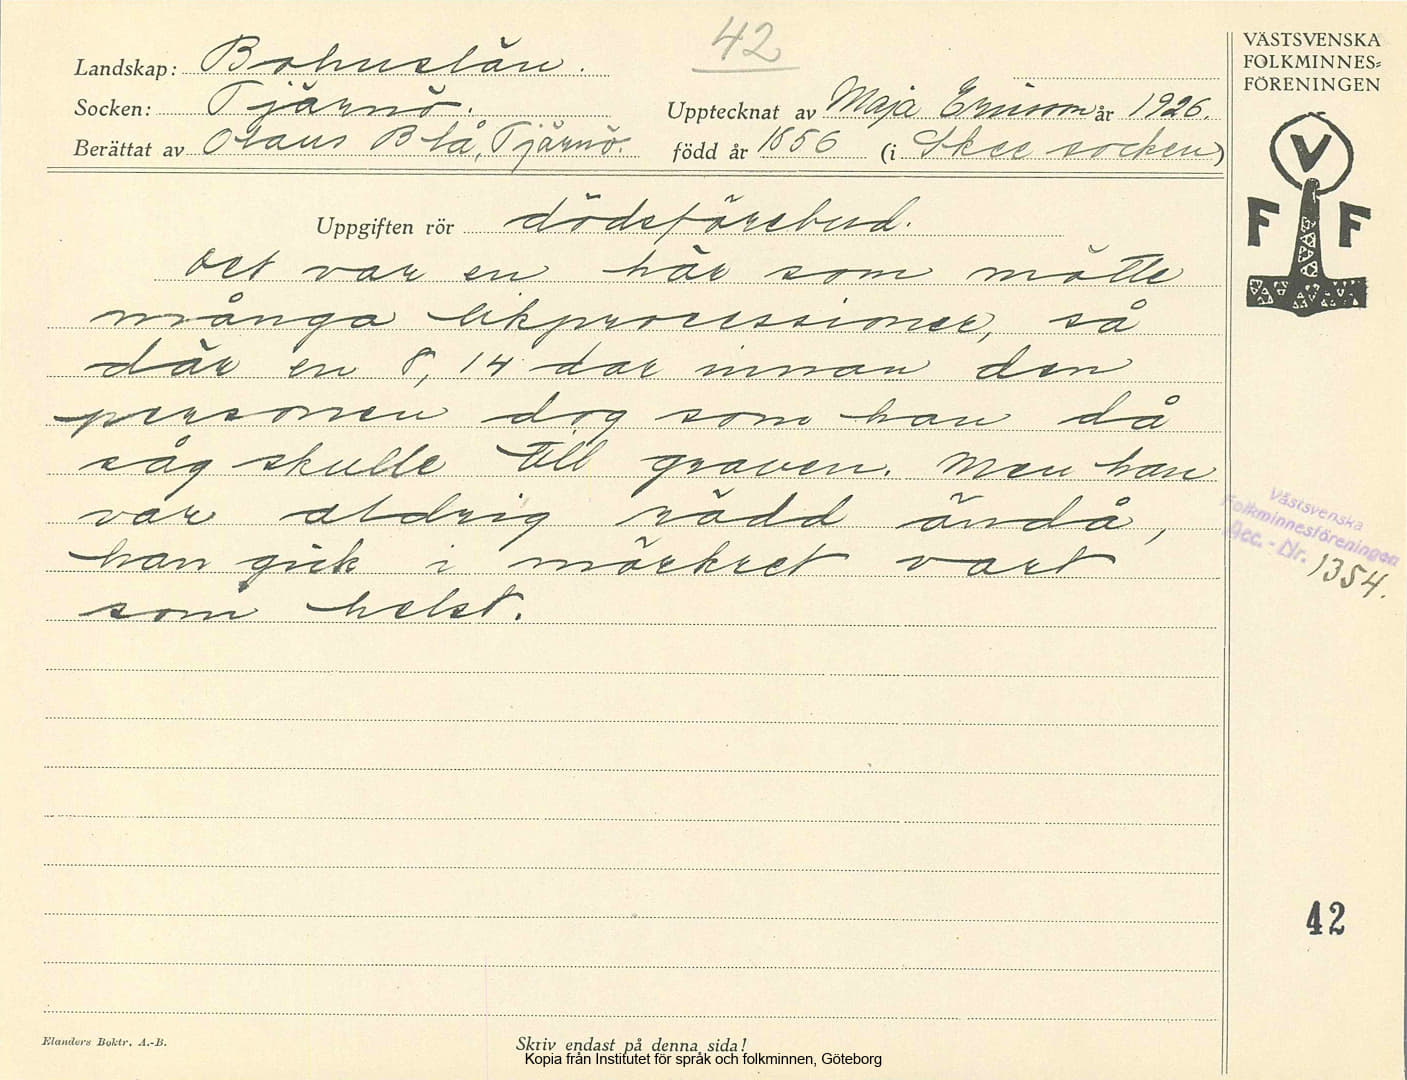 42
Landskap: Bohuslän.
Socken: Tjärnö.
Upptecknat av Maja Ericson år 1926.
Berättat av Olaus Blå, Tjärnö.
född år 1856 (i Skee socken)
VÄSTSVENSKA
FOLKMINNES=
FÖRENINGEN
V
F F
Uppgiften rör dödsförebud.
Det var en här som mötte
många likprocessioner, så
där en 8, 14 dar innan den
personen dog som han då
såg skulle till graven. Men han
var aldrig rädd ändå,
han gick i mörkret vart
som helst.
Västsvenska
Folkminnesföreningen
Acc. - Nr. 1354.
42
Elanders Boktr. A.-B.
Skriv endast på denna sida!
Kopia från Institutet för språk och folkminnen, Göteborg